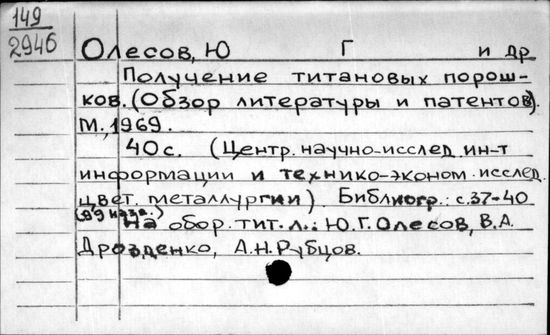 149
2946
Олесов, Ю Г и др
Получение титановых порош-
ков. (Обзор литературы и патентов).
М., 1969.
40 с. (Центр. научно-исслед. ин-т
информации и технико-эконом. исслед.
цвет. металлургии). Библиогр.: с. 37-40
(99 назв.)
На обор. тит. л.: Ю.Г. Олесов, В.А.
Дрозденко, А.Н. Рубцов.